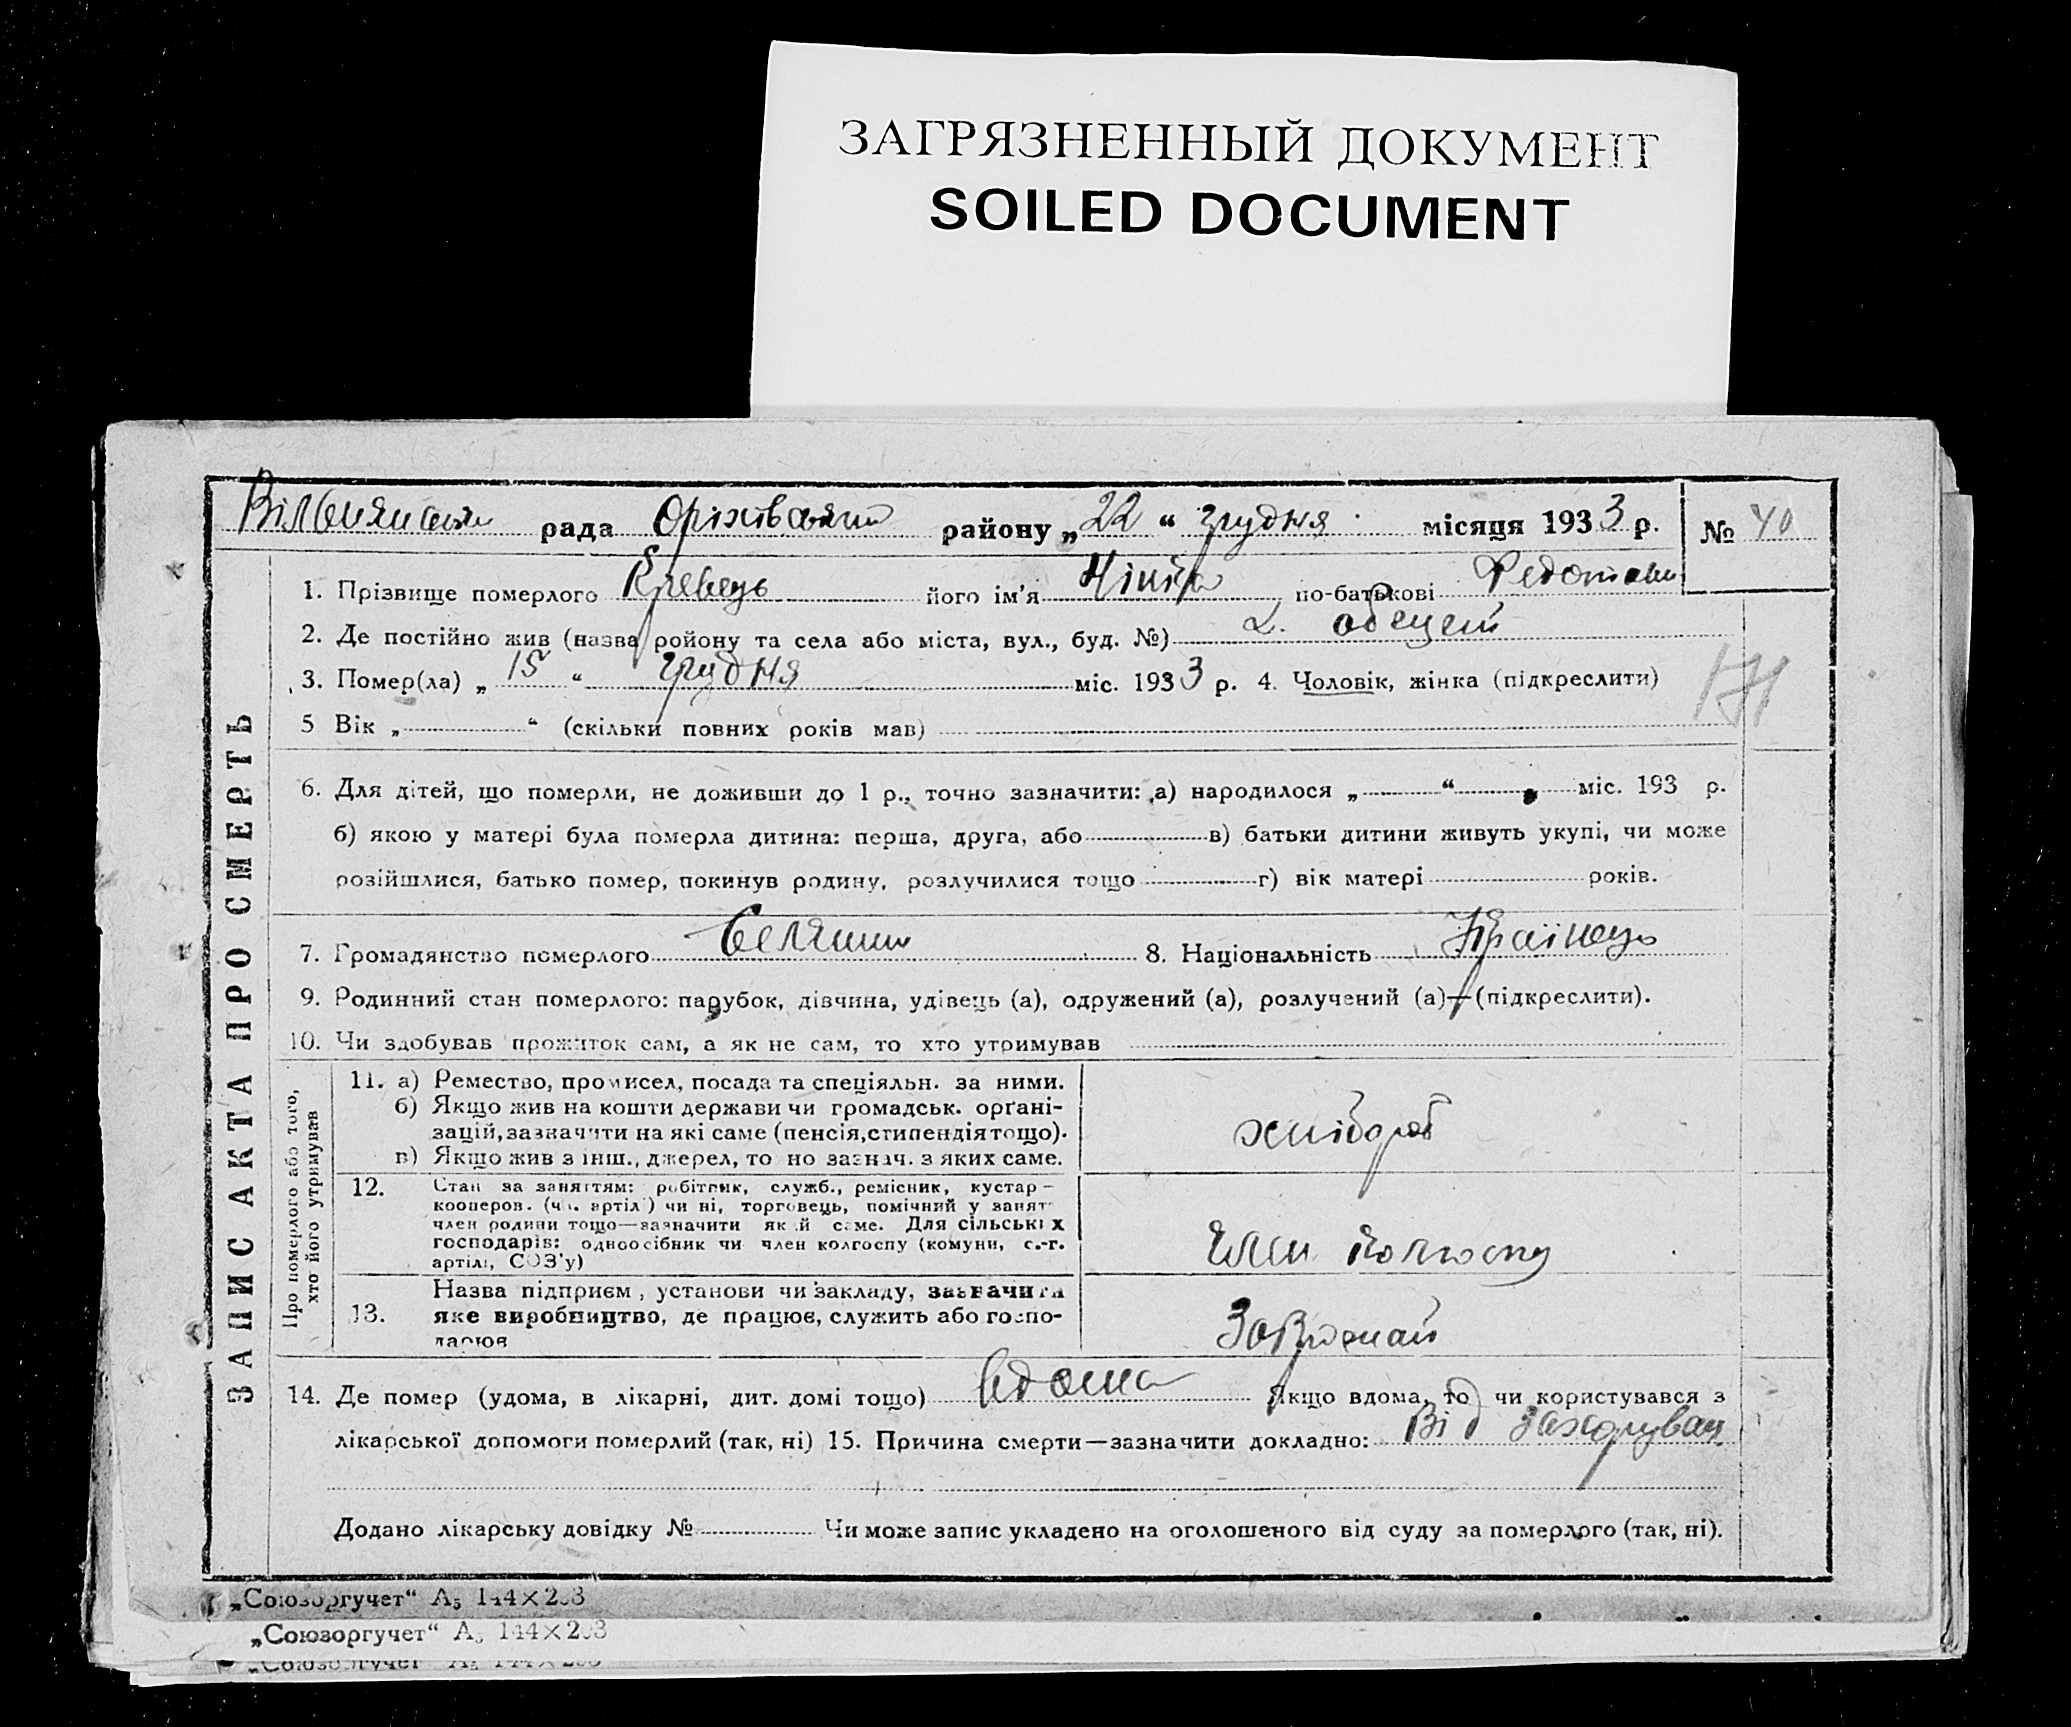 ЗАГРЯЗНЕННЫЙ ДОКУМЕНТ
SOILED DOCUMENT
рада району „22“ грудня місяця 1933 р. № 40
1. Прізвище померлого його ім'я по-батькові
2. Де постійно жив (назва ройону та села або міста, вул., буд. №)
3. Помер(ла) „15“ грудня міс. 1933 р. 4. Чоловік, жінка (підкреслити)
5 Вік „ “ (скільки повних років мав)
6. Для дітей, що померли, не доживши до 1 р., точно зазначити: а) народилося „ “ міс. 193 р.
б) якою у матері була померла дитина: перша, друга, або в) батьки дитини живуть укупі, чи може
розійшлися, батько помер, покинув родину, розлучилися тощо г) вік матері років.
7. Громадянство померлого Селянин 8. Національність Українець
9. Родинний стан померлого: парубок, дівчина, удівець (а), одружений (а), розлучений (а)—(підкреслити).
10. Чи здобував прожиток сам, а як не сам, то хто утримував
ЗАПИС АКТА ПРО СМЕРТЬ
Про померлого або того,
хто його утримував
11. а) Ремество, промисел, посада та спеціяльн. за ними.
б) Якщо жив на кошти держави чи громадськ. орґані-
зацій, зазначити на які саме (пенсія, стипендія тощо).
в) Якщо жив з інш., джерел, то но зазнач. з яких саме.
хлібороб
12. Стан за заняттям: робітник, служб., ремісник, кустар—
кооперов. (чл. артіл) чи ні, торговець, помічний у занят
член родини тощо—зазначити який саме. Для сільських
господарів: одноосібник чи член колгоспу (комуни, с.-г.
артілі, СОЗ'у)
член колгоспу
13. Назва підприєм, установи чи закладу, зазначити
яке виробництво, де працює, служить або госпо-
дарює
14. Де помер (удома, в лікарні, дит. домі тощо) вдома Якщо вдома, то чи користувався з
лікарської допомоги померлий (так, ні) 15. Причина смерти—зазначити докладно: Від
Додано лікарську довідку № Чи може запис укладено на оголошеного від суду за померлого (так, ні).
„Союзоргучет“ А₅ 144×203
„Союзоргучет“ А₅ 144×203